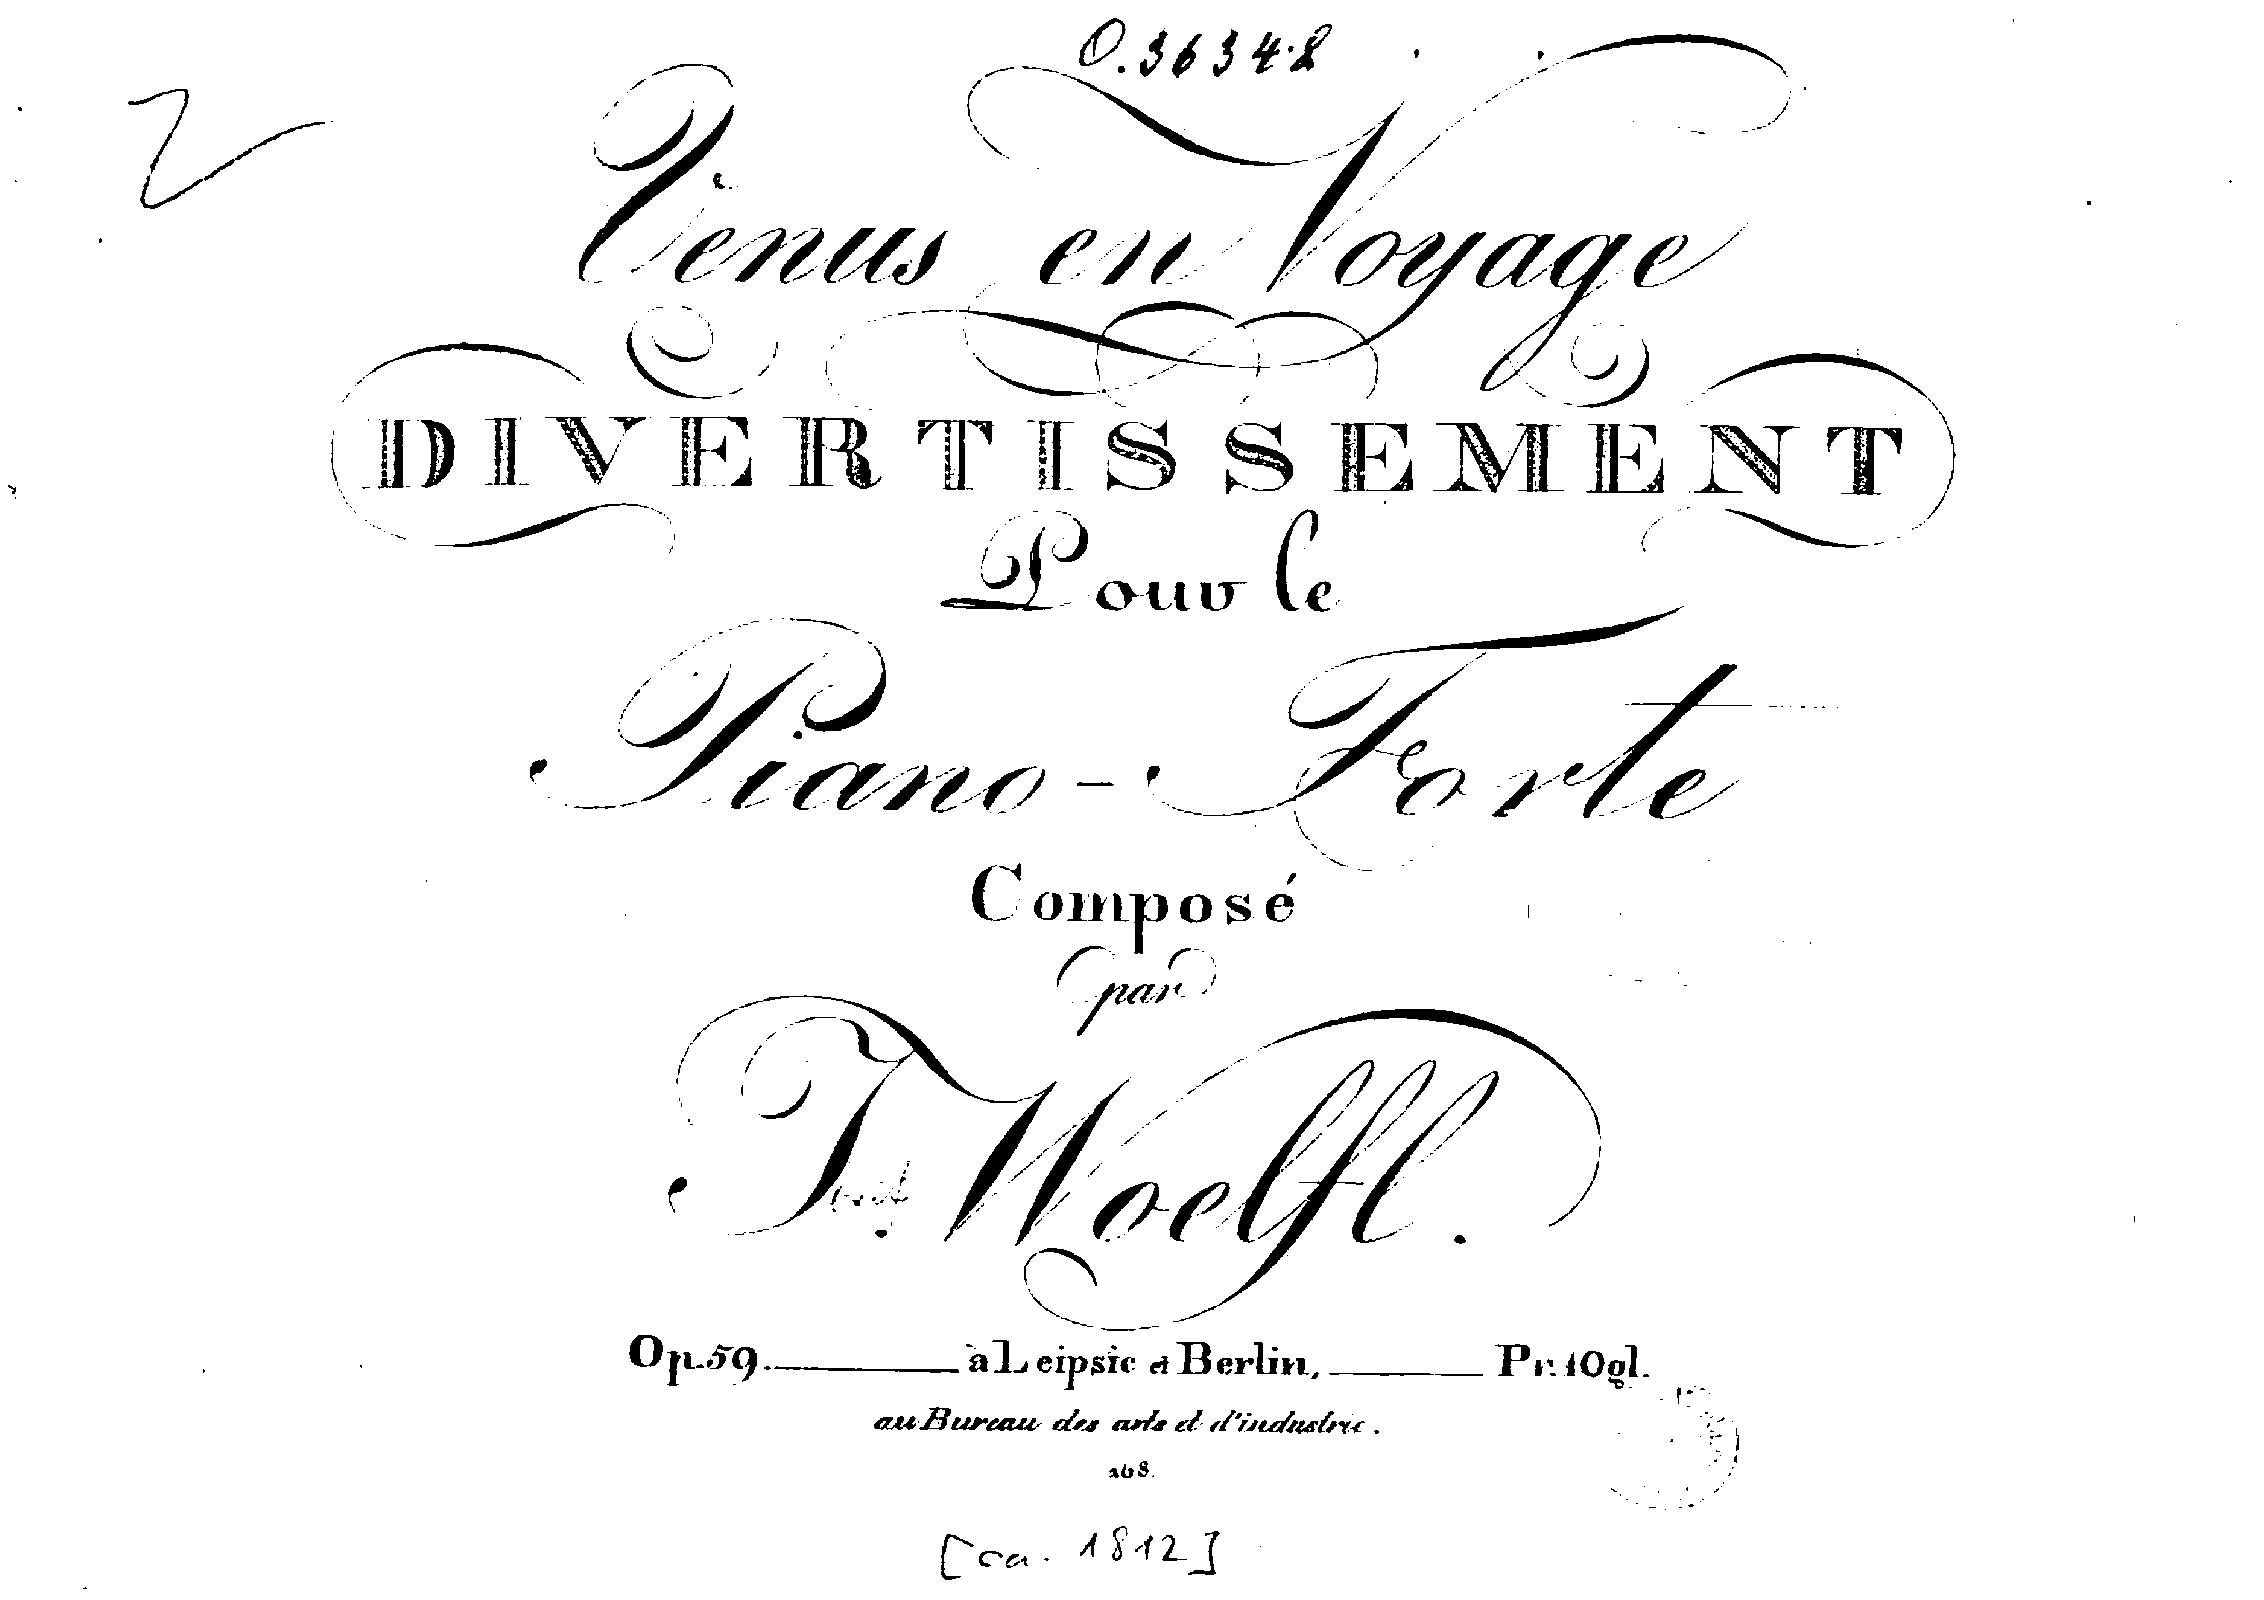 O.36342
Venus en Voyage
DIVERTISSEMENT
Pour le
Piano-Forte
Composé
par
J. Woelfl.
Op. 59. à Leipsic et Berlin, Pr. 10 gl.
au Bureau des arts et d'industrie.
168.
[ca. 1812]